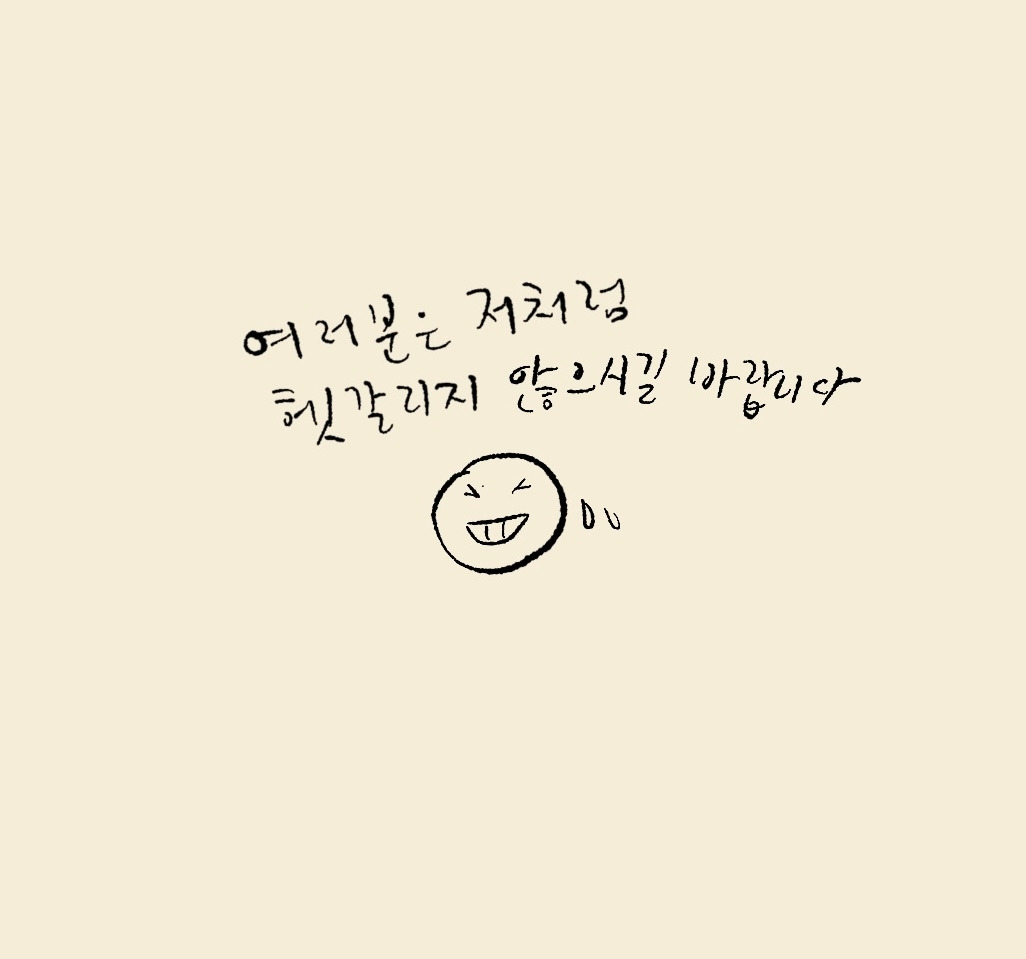 여러분은 저처럼
헷갈리지 않으시길 바랍니다